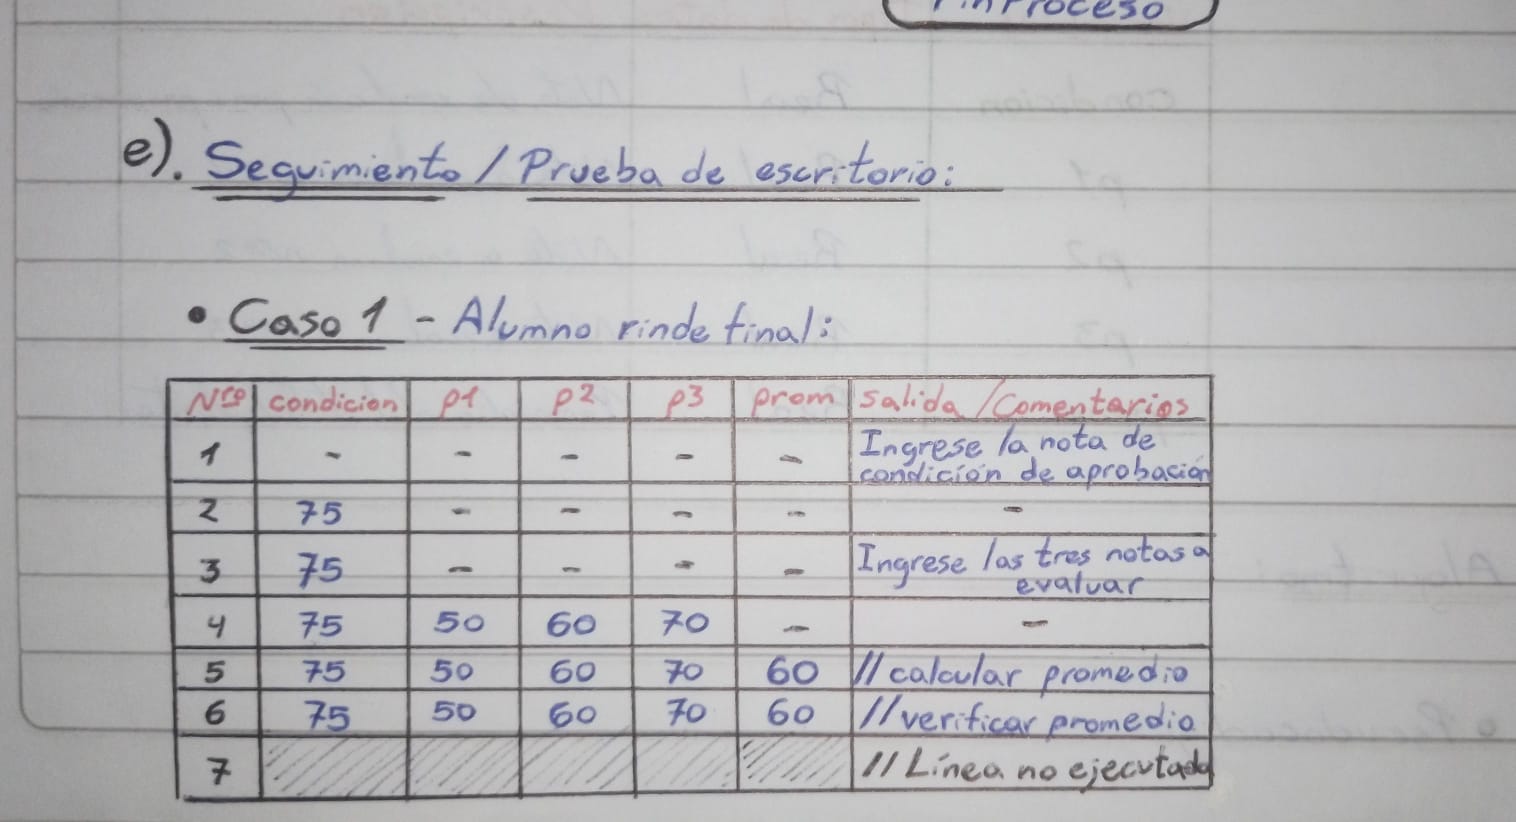 FinProceso
e). Seguimiento / Prueba de escritorio:
• Caso 1 - Alumno rinde final:
Nro condicion p1 p2 p3 prom salida/Comentarios
1 - - - - - Ingrese la nota de
condición de aprobación
2 75 - - - - -
3 75 - - - - Ingrese las tres notas a
evaluar
4 75 50 60 70 - -
5 75 50 60 70 60 // calcular promedio
6 75 50 60 70 60 // verificar promedio
7 // Línea no ejecutada